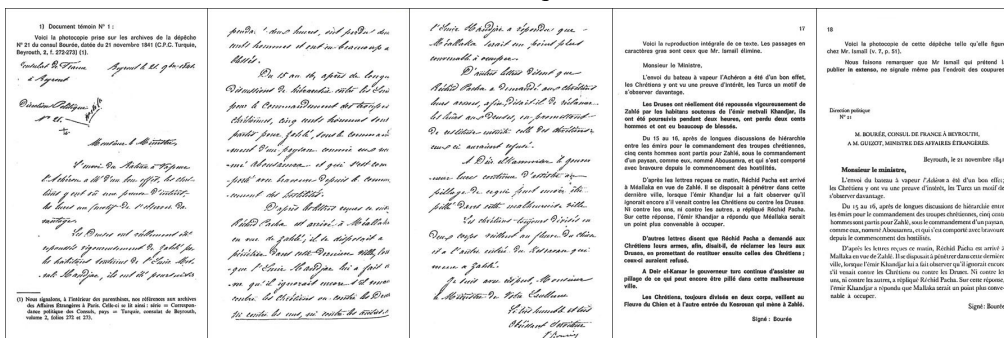 1) Document témoin N° 1 :
Voici la photocopie prise sur les archives de la dépêche
N° 21 du consul Bourée, datée du 21 novembre 1841 (C.P.C. Turquie,
Beyrouth, 2, f. 272-273) (1).
Consulat de France
à Beyrout
Beyrout le 21 9bre 1841
Direction Politique
N° 21.
Monsieur le Ministre,
L'envoi du Bateau à Vapeur
l'Achéron a été d'un bon effet, les chré-
tiens y ont vu une preuve d'intérêt,
les Turcs un motif de s'observer da-
vantage.
Les Druses ont réellement été
repoussés vigoureusement de Zahlé par
les habitans soutenus de l'Emir
Khandjar, ils ont été poursuivis
(1) Nous signalons, à l'intérieur des parenthèses, nos références aux archives
des Affaires Étrangères à Paris. Celle-ci se lit ainsi : série « Correspon-
dance politique des Consuls, pays « Turquie, consulat de Beyrouth,
volume 2, folios 272 et 273.
pendant deux heures, ont perdu deux
cents hommes et ont eu beaucoup de
blessés.
Du 15 au 16, après de longues
discussions de hiérarchie entre les Emirs
pour le commandement des troupes
chrétiennes, cinq cents hommes sont
partis pour Zahlé, sous le commande-
ment d'un paysan, comme eux nom-
mé Abousamra et qui s'est com-
porté avec bravoure depuis le commen-
cement des hostilités.
D'après les lettres reçues ce matin
Réchid Pacha est arrivé à Mallaka
en vue de Zahlé, il se disposait à
pénétrer dans cette dernière ville, lors-
que l'Emir Khandjar lui a fait
contre les Chrétiens ou contre les Druses
Ni contre les uns, ni contre les autres, a
l'Emir Khandjar a répondu que
Mallaka serait un point plus
convenable à occuper.
D'autres lettres disent que
Réchid Pacha a demandé aux chrétiens
leurs armes, afin, disait-il, de réclamer
les leurs aux Druses, en promettant
de restituer ensuite celles des chrétiens
ceux-ci auraient refusé.
A Deir el Kammar le gouver-
neur turc continue d'assister au
pillage de ce qui peut encore être
pillé dans cette malheureuse ville.
Les chrétiens toujours divisés en
deux corps veillent au fleuve du chien
et à l'autre entrée du Kesrouan qui
mène à Zahlé.
Je suis avec respect, Monsieur
le Ministre, de Votre Excellence
Le très humble et très
Obéissant Serviteur
Bourée
17
Voici la reproduction intégrale de ce texte. Les passages en
caractères gras sont ceux que Mr. Ismaïl élimine.
Monsieur le Ministre,
L'envoi du bateau à vapeur l'Achéron a été d'un bon effet,
les Chrétiens y ont vu une preuve d'intérêt, les Turcs un motif de
s'observer davantage.
Les Druses ont réellement été repoussés vigoureusement de
Zahlé par les habitants soutenus de l'émir métuali Khandjar, ils
ont été poursuivis pendant deux heures, ont perdu deux cents
hommes et ont eu beaucoup de blessés.
Du 15 au 16, après de longues discussions de hiérarchie
entre les émirs pour le commandement des troupes chrétiennes,
cinq cents hommes sont partis pour Zahlé, sous le commandement
d'un paysan, comme eux, nommé Abousamra, et qui s'est comporté
avec bravoure depuis le commencement des hostilités.
D'après les lettres reçues ce matin, Réchid Pacha est arrivé
à Méallaka en vue de Zahlé. Il se disposait à pénétrer dans cette
dernière ville, lorsque l'Emir Khandjar lui a fait observer qu'il
ignorait encore s'il venait contre les Chrétiens ou contre les Druses.
Ni contre les uns, ni contre les autres, a répliqué Réchid Pacha.
Sur cette réponse, l'émir Khandjar a répondu que Méallaka serait
un point plus convenable à occuper.
D'autres lettres disent que Réchid Pacha a demandé aux
Chrétiens leurs armes, afin, disait-il, de réclamer les leurs aux
Druses, en promettant de restituer ensuite celles des Chrétiens ;
ceux-ci auraient refusé.
A Deir el-Kamar le gouverneur turc continue d'assister au
pillage de ce qui peut encore être pillé dans cette malheureuse
ville.
Les Chrétiens, toujours divisés en deux corps, veillent au
Fleuve du Chien et à l'autre entrée du Kesrouan qui mène à Zahlé.
Signé : Bourée
18
Voici la photocopie de cette dépêche telle qu'elle figure
chez Mr. Ismaïl (v. 7, p. 51).
Nous faisons remarquer que Mr Ismaïl qui prétend la
publier in extenso, ne signale même pas l'endroit des coupures.
Direction politique
N° 21
M. BOURÉE, CONSUL DE FRANCE À BEYROUTH,
A M. GUIZOT, MINISTRE DES AFFAIRES ÉTRANGÈRES.
Beyrouth, le 21 novembre 1841
Monsieur le ministre,
L'envoi du bateau à vapeur l'Achéron a été d'un bon effet;
les Chrétiens y ont vu une preuve d'intérêt, les Turcs un motif de
s'observer davantage.
Du 15 au 16, après de longues discussions de hiérarchie entre
les émirs pour le commandement des troupes chrétiennes, cinq cents
hommes sont partis pour Zahlé, sous le commandement d'un paysan,
comme eux, nommé Abousamra, et qui s'est comporté avec bravoure
depuis le commencement des hostilités.
D'après les lettres reçues ce matin, Réchid Pacha est arrivé à
Mallaka en vue de Zahlé. Il se disposait à pénétrer dans cette dernière
ville, lorsque l'émir Khandjar lui a fait observer qu'il ignorait encore
s'il venait contre les Chrétiens ou contre les Druses. Ni contre les
uns, ni contre les autres, a répliqué Réchid Pacha. Sur cette réponse,
l'émir Khandjar a répondu que Mallaka serait un point plus conve-
nable à occuper.
Signé: Bourée